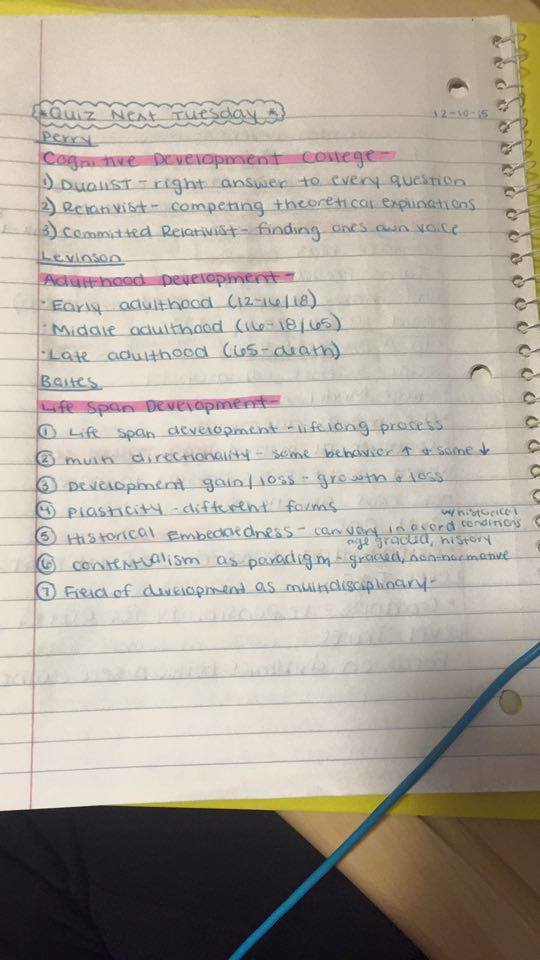 *Quiz Next Tuesday*
12-10-15
Perry
Cognitive Development College-
1) Dualist - right answer to every question
2) Relativist - competing theoretical explinations
3) Committed Relativist - finding ones own voice
Levinson
Adulthood Development -
· Early adulthood (12-16/18)
· Middle adulthood (16-18/65)
· Late adulthood (65-death)
Baltes
Life Span Development -
① Life span development - lifelong process
② multi directionality - some behavior ↑ + some ↓
③ Development gain/loss - growth + loss
④ Plasticity - different forms
w/historical
⑤ Historical Embeddedness - can vary in acord conditions
age graded, history
⑥ contextualism as paradigm - graded, non-normative
⑦ Field of development as multidisciplinary -